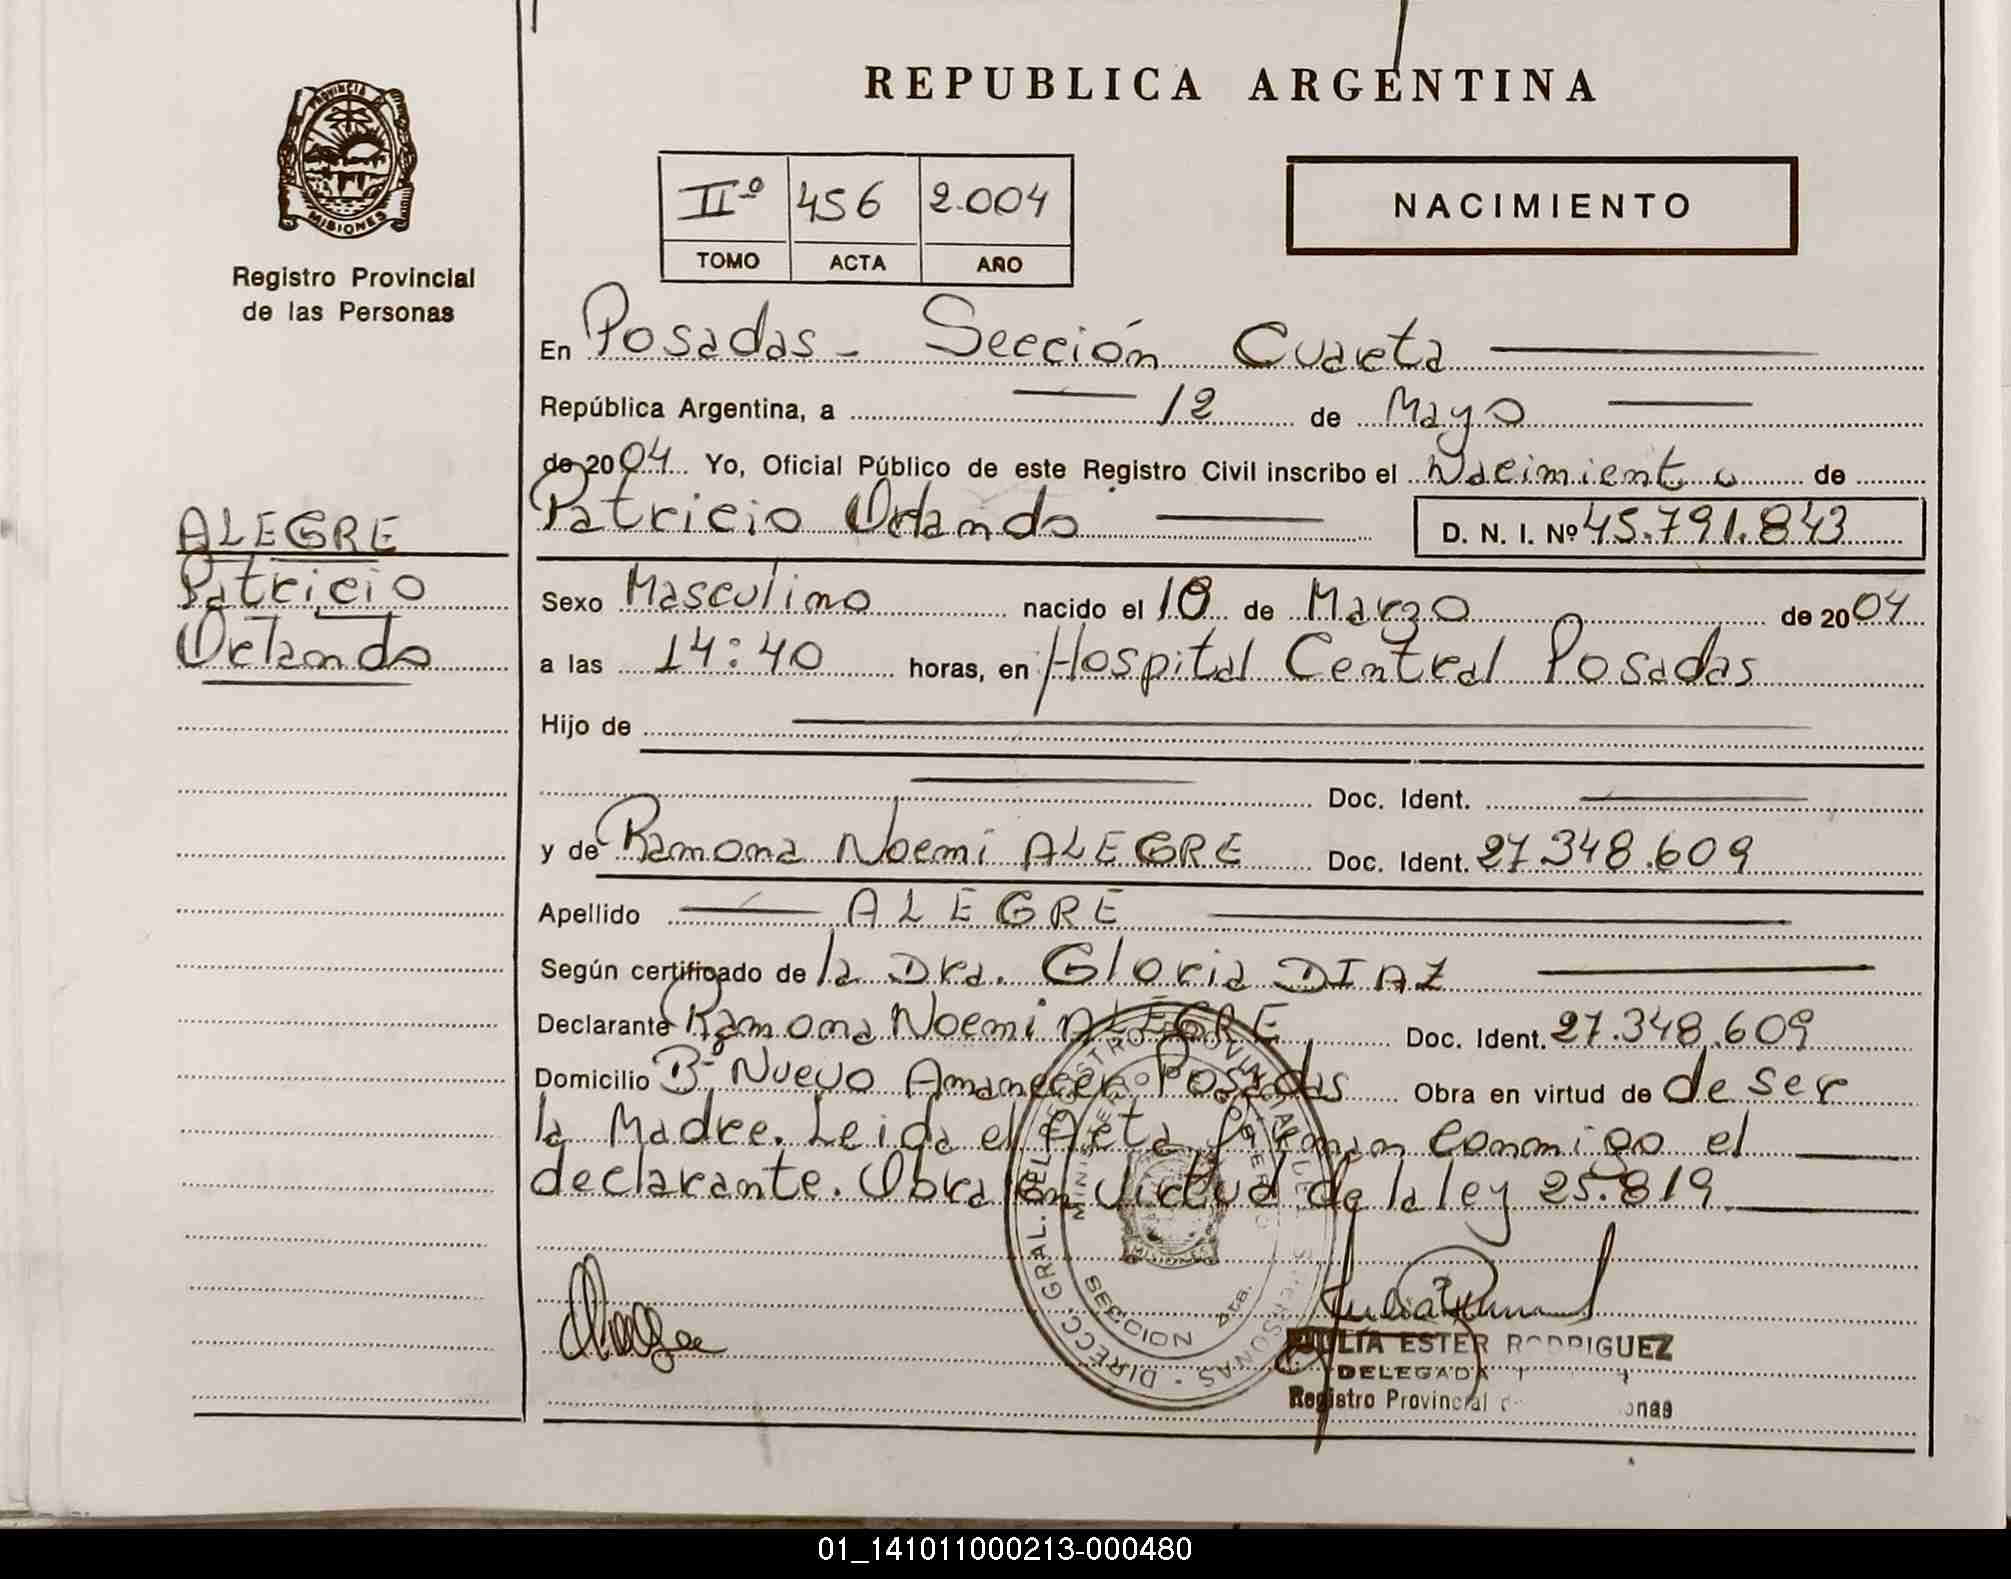 REPUBLICA ARGENTINA
PROVINCIA DE
MISIONES
Registro Provincial
de las Personas
IIº 456 2.004
TOMO ACTA AÑO
NACIMIENTO
En Posadas - Sección Cuarta
República Argentina, a 12 de Mayo
de 2004 Yo, Oficial Público de este Registro Civil inscribo el Nacimiento de
Patricio Orlando D. N. I. Nº 45.791.843
ALEGRE
Patricio
Orlando
Sexo Masculino nacido el 10 de Marzo de 2004
a las 14:40 horas, en Hospital Central Posadas
Hijo de
Doc. Ident.
y de Ramona Noemi ALEGRE Doc. Ident. 27.348.609
Apellido ALEGRE
Según certificado de la Dra. Gloria DIAZ
Declarante Ramona Noemi ALEGRE Doc. Ident. 27.348.609
Domicilio Bº Nuevo Amanecer Posadas Obra en virtud de de ser
la Madre. Leida el Acta firman conmigo el
declarante. Obra en virtud de la ley 25.819
DIRECC. GRAL. DEL REGISTRO PROVINCIAL DE LAS PERSONAS
MINISTERIO DE GOBIERNO
MISIONES
SECCION 4ta.
JULIA ESTER RODRIGUEZ
DELEGADA
Registro Provincial
01_141011000213-000480